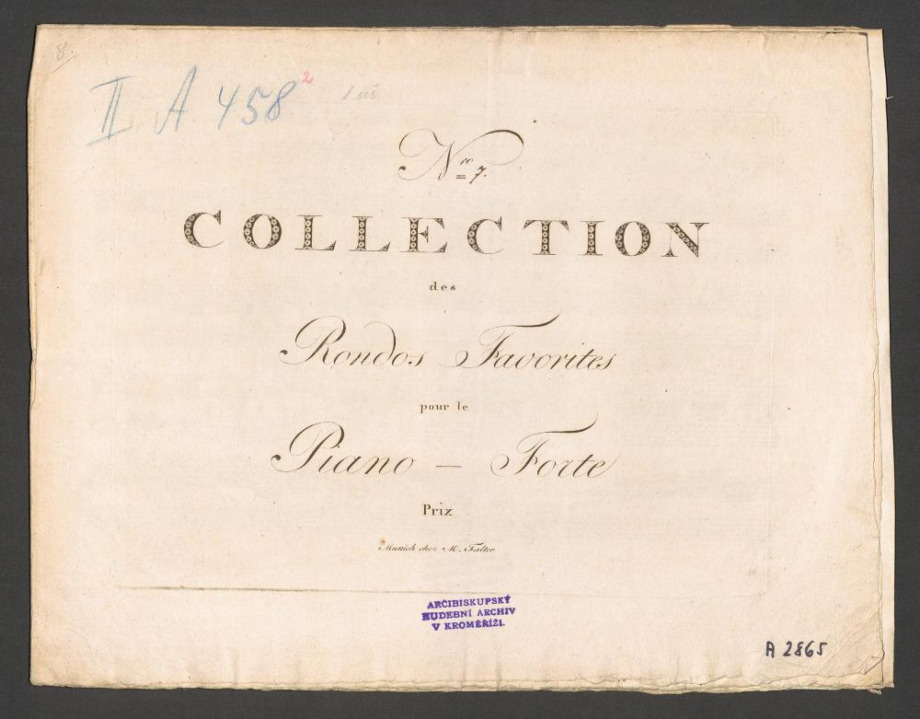 8.
II A 458 2
Nro 7.
COLLECTION
des
Rondos Favorites
pour le
Piano – Forte
Prix
Munich chez M. Falter
ARCIBISKUPSKÝ
HUDEBNÍ ARCHIV
V KROMĚŘÍŽI.
A 2865